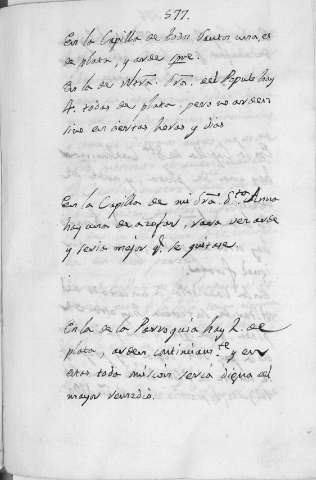 577.
En la Capilla de todos Santos una, es
de plata, y arde spre.
En la de Ntrã. Srã. del Populo hay
4. todas de plata, pero no arden
sino en ciertas horas y dias
En la Capilla de mi Srã. Sta. Anna
hay una de azofar, rara vez arde
y seria mejor q̃. se quitase.
En la de la Parroquia hay 2. de
plata, arden continuamte. y en
estas toda mision seria digna del
mayor remedio.